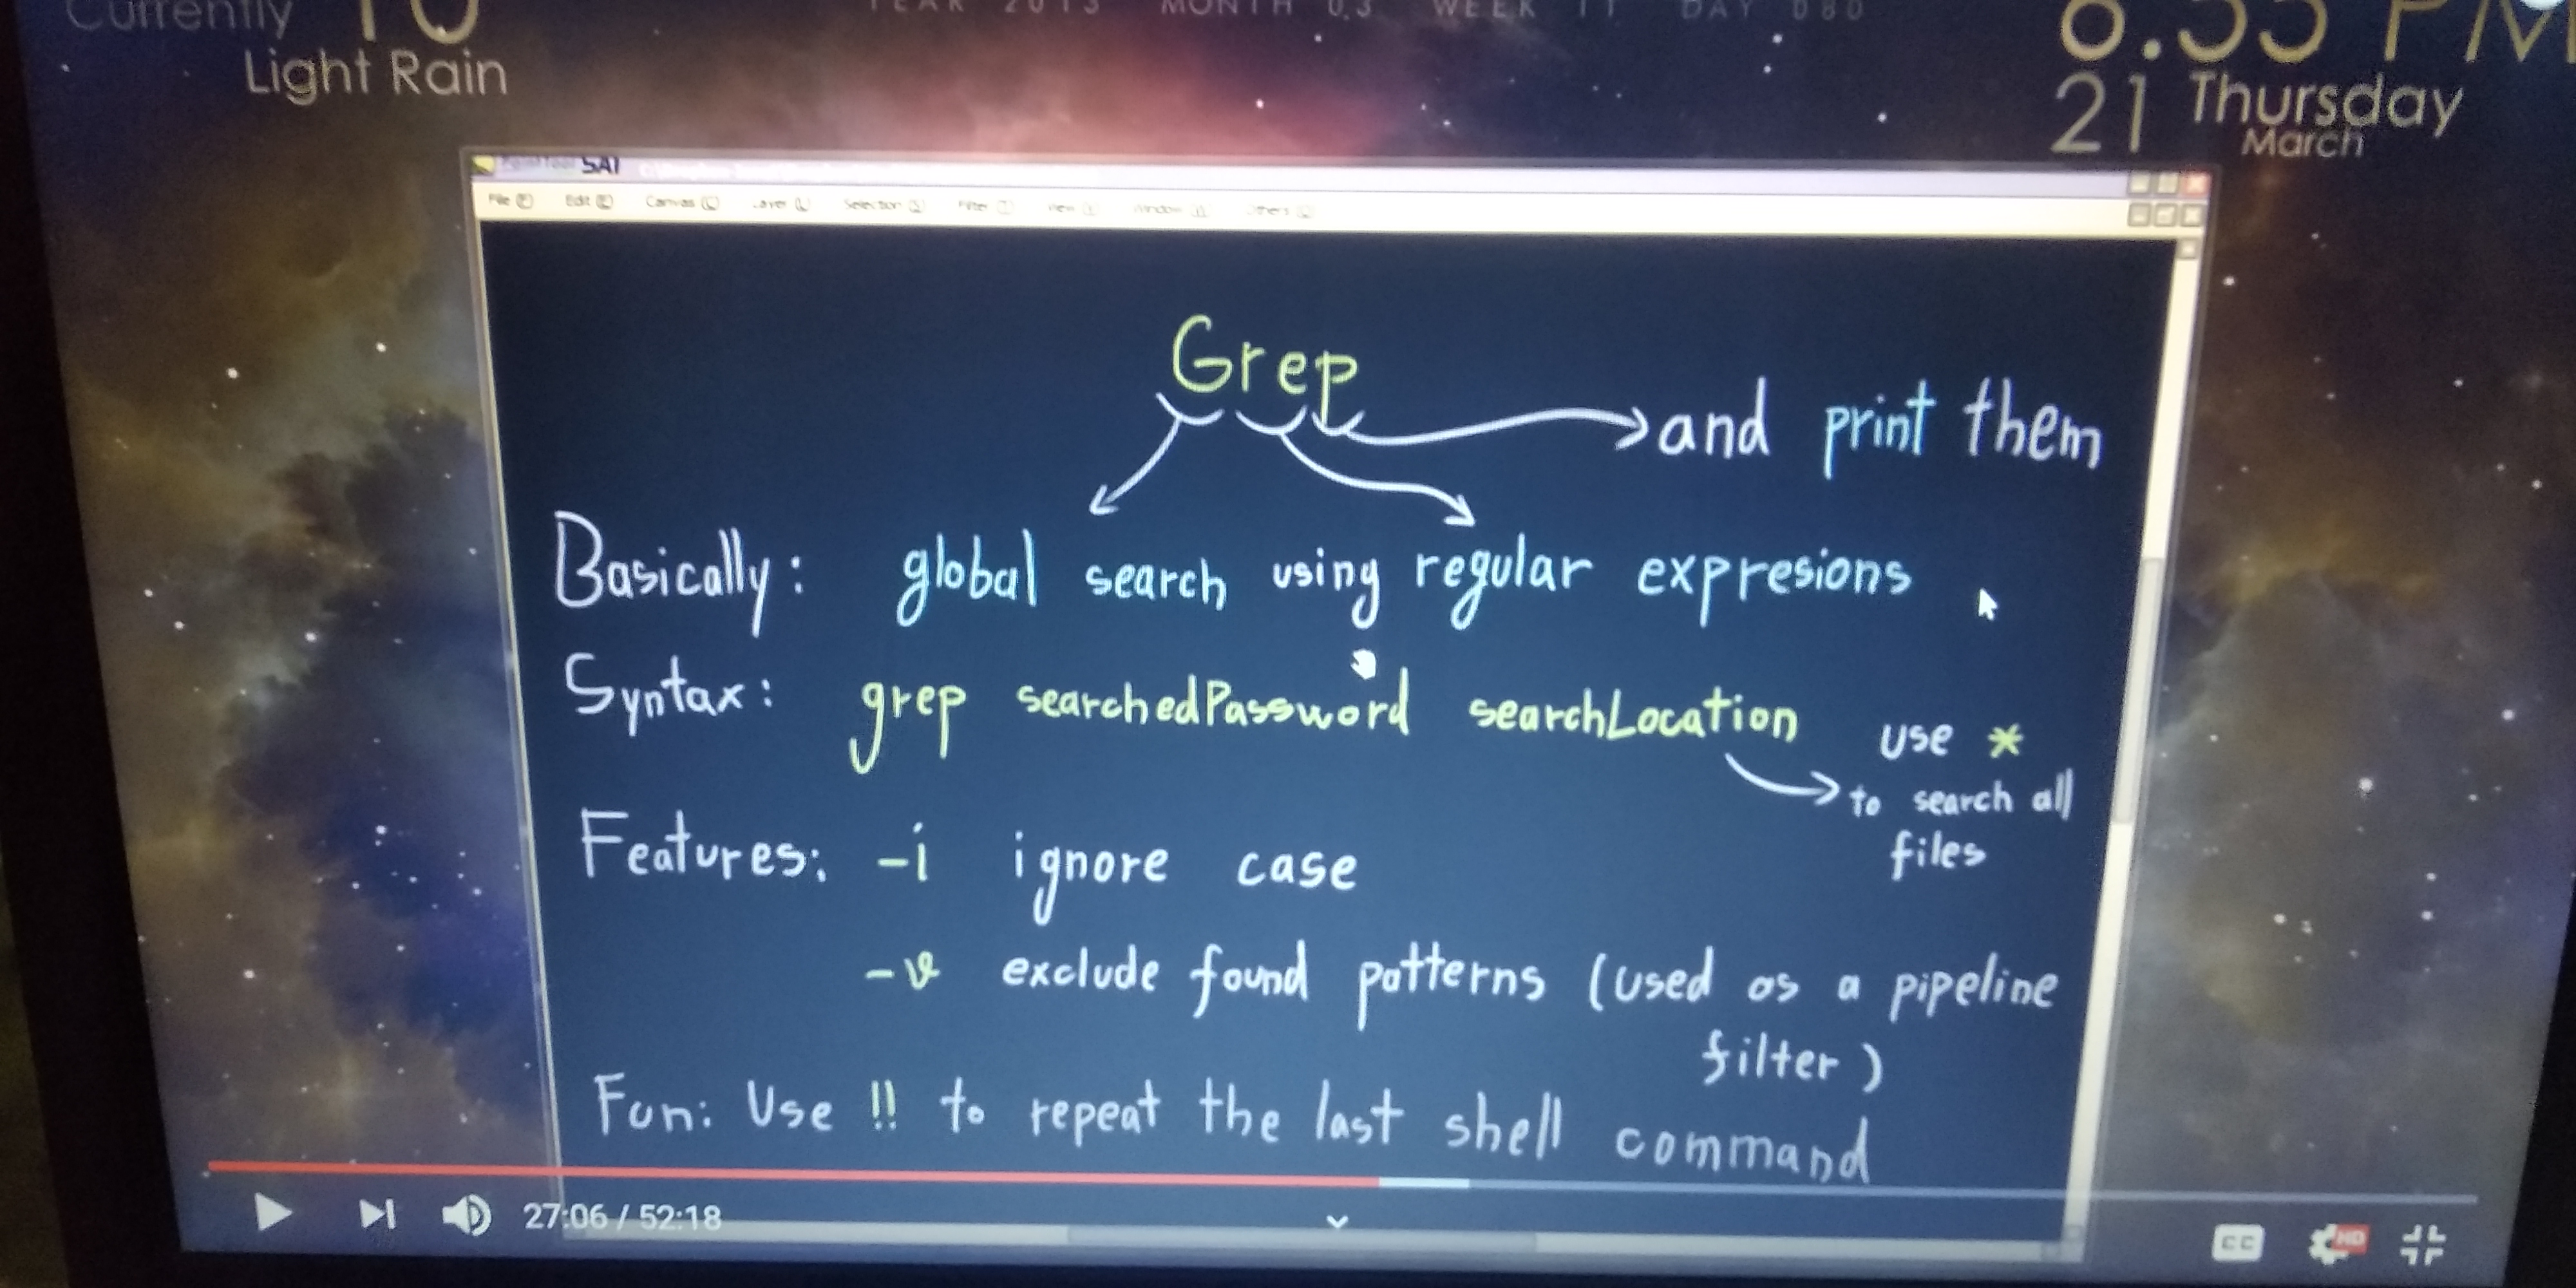 Currently
Light Rain
YEAR 2013 MONTH 03 WEEK 11 DAY 080
21 Thursday
March
SAI
File (F) Edit (E) Canvas (C) Layer (L) Selection (S) Filter (T) View (V) Window (W) Others (O)
Grep
and print them
Basically: global search using regular expresions
Syntax: grep searchedPassword searchLocation use *
to search all
files
Features: -i ignore case
-v exclude found patterns (used as a pipeline
filter)
Fun: Use !! to repeat the last shell command
27:06 / 52:18
CC
HD